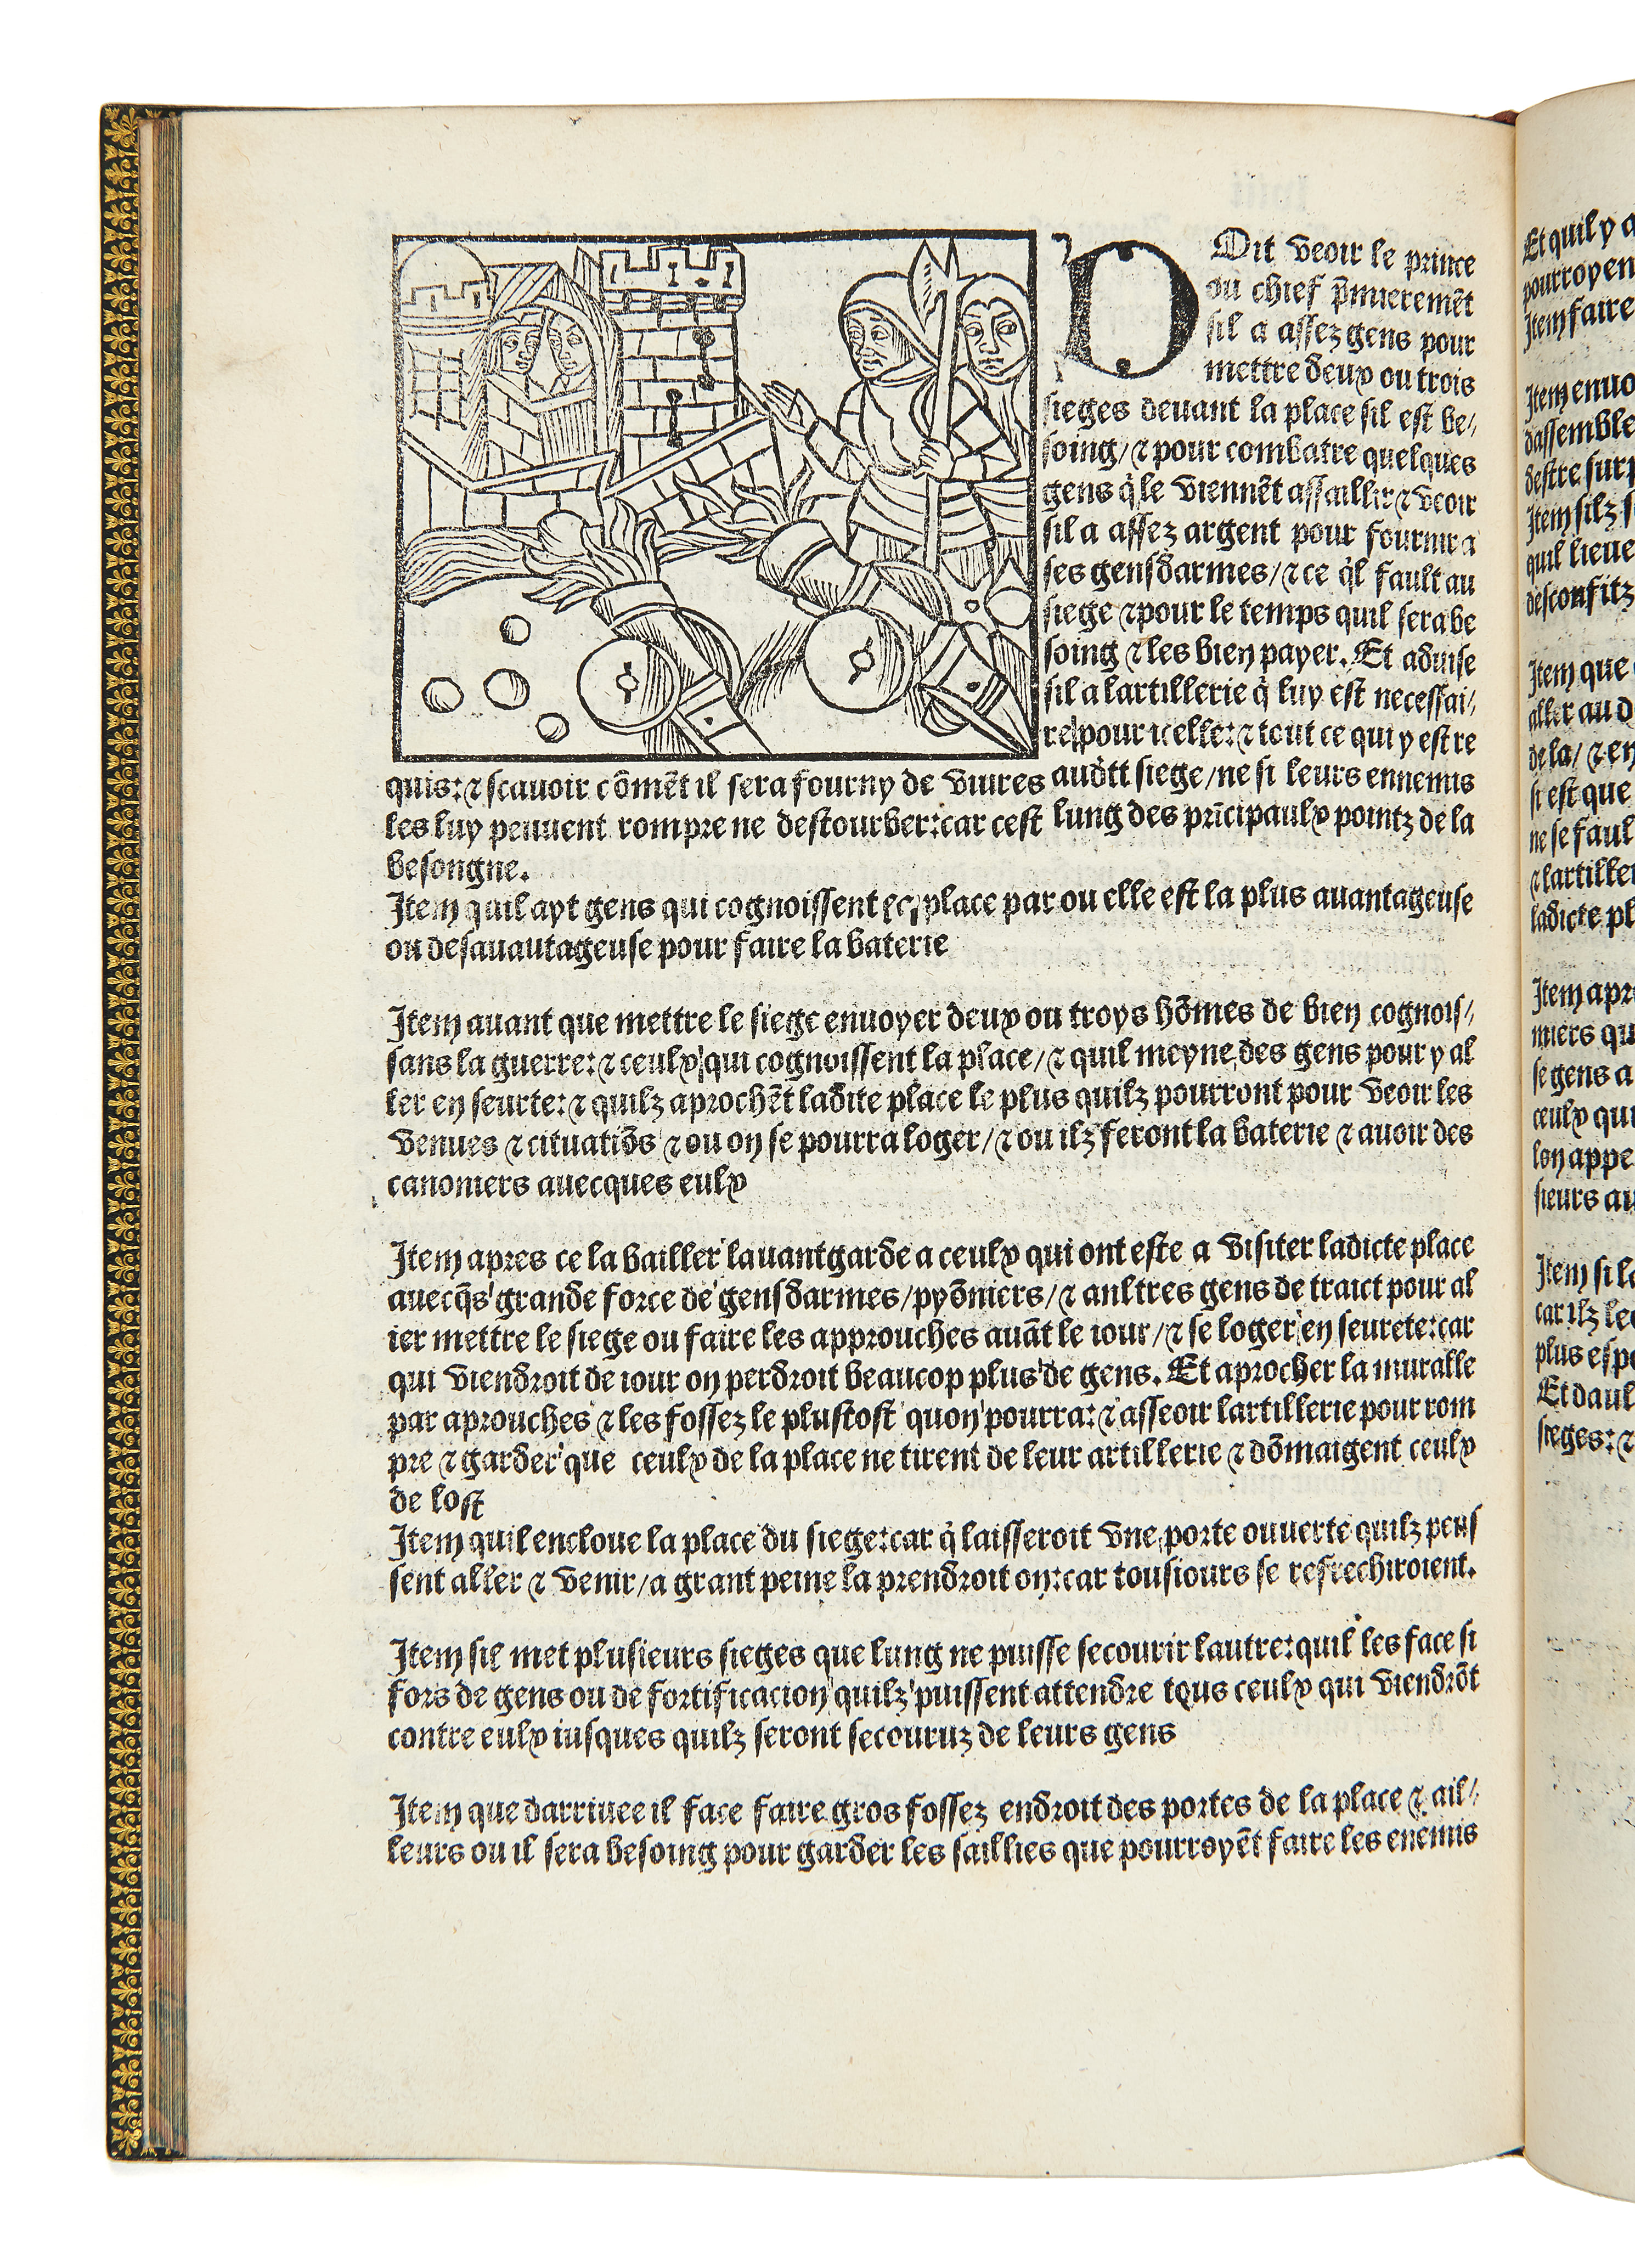 DOit veoir le prince
ou chief p̄mieremēt
sil a assez gens pour
mettre deux ou trois
sieges deuant la place sil est be/
soing/ ⁊ pour combatre quelques
gens q̇ le viennēt assaillir ⁊ veoir
sil a assez argent pour fournir a
ses gensdarmes/ ⁊ ce q̇l fault au
siege ⁊ pour le temps quil sera be
soing ⁊ les bien payer. Et aduise
sil a lartillerie q̇ luy est necessai/
re pour icelle: ⁊ tout ce qui y est re
quis: ⁊ scauoir cōmēt il sera fourny de viures audit siege/ ne si leurs ennemis
les luy peuuent rompre ne destourber: car cest lung des prīcipaulx pointz de la
besongne.
Item quil ayt gens qui cognoissent place par ou elle est la plus auantageuse
ou desauautageuse pour faire la baterie
Item auant que mettre le siege enuoyer deux ou troys hōmes de bien cognois/
sans la guerre: ⁊ ceulx qui cognoissent la place/ ⁊ quil meyne des gens pour y al
ler en seurte: ⁊ quilz aprochēt ladite place le plus quilz pourront pour veoir les
venues ⁊ cituatiōs ⁊ ou on se pourra loger/ ⁊ ou ilz feront la baterie ⁊ auoir des
canoniers auecques eulx
Item apres ce la bailler lauantgarde a ceulx qui ont este a visiter ladicte place
auecq̄s grande force de gensdarmes/ pyōniers/ ⁊ aultres gens de traict pour al
ier mettre le siege ou faire les approuches auāt le iour/ ⁊ se loger en seurete: car
qui viendroit de iour on perdroit beaucop plus de gens. Et aprocher la muralle
par aprouches ⁊ les fossez le plustost quon pourra: ⁊ asseoir lartillerie pour rom
pre ⁊ garder que ceulx de la place ne tirent de leur artillerie ⁊ dōmaigent ceulx
de lost
Item quil encloue la place du siege: car q̇ laisseroit vne porte ouuerte quilz peus
sent aller ⁊ venir/ a grant peine la prendroit on: car tousiours se refrechiroient.
Item sil met plusieurs sieges que lung ne puisse secourir lautre: quil les face si
fors de gens ou de fortificacion quilz puissent attendre tous ceulx qui viendrōt
contre eulx iusques quilz seront secouruz de leurs gens
Item que darriuee il face faire gros fossez endroit des portes de la place ⁊ ail/
leurs ou il sera besoing pour garder les saillies que pourroyēt faire les enemis
Et quil y a
pourroyen
Item faire
Item enuo
dassemble
destre surp
Item silz s
quil lieue
desconfitz
Item que
aller au d
de la/ ⁊ en
si est que
ne se faul
⁊ lartiller
ladicte pl
Item apr
miers qu
se gens a
ceulx qui
lon appe
sieurs au
Item si le
car ilz le
plus espe
Et daul
sieges: ⁊